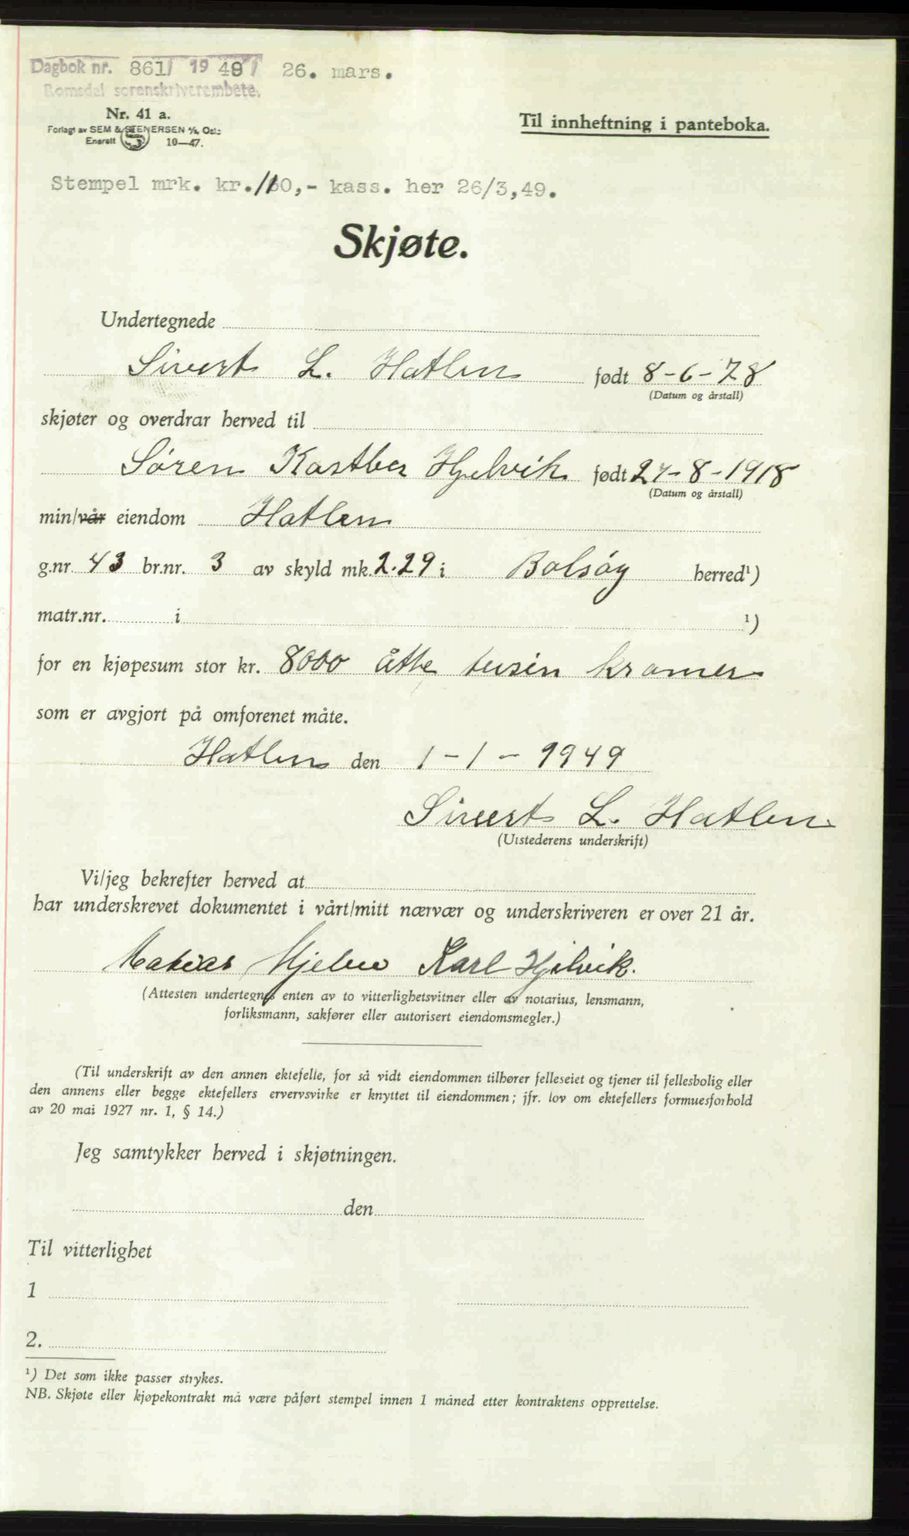 Dagbok nr. 861/ 19 49/ 26. mars.
Romsdal sorenskriverembete.
Nr. 41 a.
Forlagt av SEM & STENERSEN A/S, Oslo
Enerett S 10—47.
Til innheftning i panteboka.
Stempel mrk. kr. 110,- kass. her 26/3,49.
Skjøte.
Undertegnede
Sivert L. Hatlen født 8-6-78
(Datum og årstall)
skjøter og overdrar herved til
Søren Kastber Hjelvik født 27-8-1918
(Datum og årstall)
min/vår eiendom Hatlen
g.nr. 43 br.nr. 3 av skyld mk. 2.29 i Bolsøy herred¹)
matr.nr. i ¹)
for en kjøpesum stor kr. 8000 åtte tusin kroner
som er avgjort på omforenet måte.
Hatlen den 1-1-1949
Sivert L. Hatlen
(Utstederens underskrift)
Vi/jeg bekrefter herved at
har underskrevet dokumentet i vårt/mitt nærvær og underskriveren er over 21 år.
Hjelvik Karl Hjelvik.
(Attesten undertegnes enten av to vitterlighetsvitner eller av notarius, lensmann,
forliksmann, sakfører eller autorisert eiendomsmegler.)
(Til underskrift av den annen ektefelle, for så vidt eiendommen tilhører felleseiet og tjener til fellesbolig eller
den annens eller begge ektefellers ervervsvirke er knyttet til eiendommen; jfr. lov om ektefellers formuesforhold
av 20 mai 1927 nr. 1, § 14.)
Jeg samtykker herved i skjøtningen.
den
Til vitterlighet
1
2.
¹) Det som ikke passer strykes.
NB. Skjøte eller kjøpekontrakt må være påført stempel innen 1 måned etter kontraktens opprettelse.